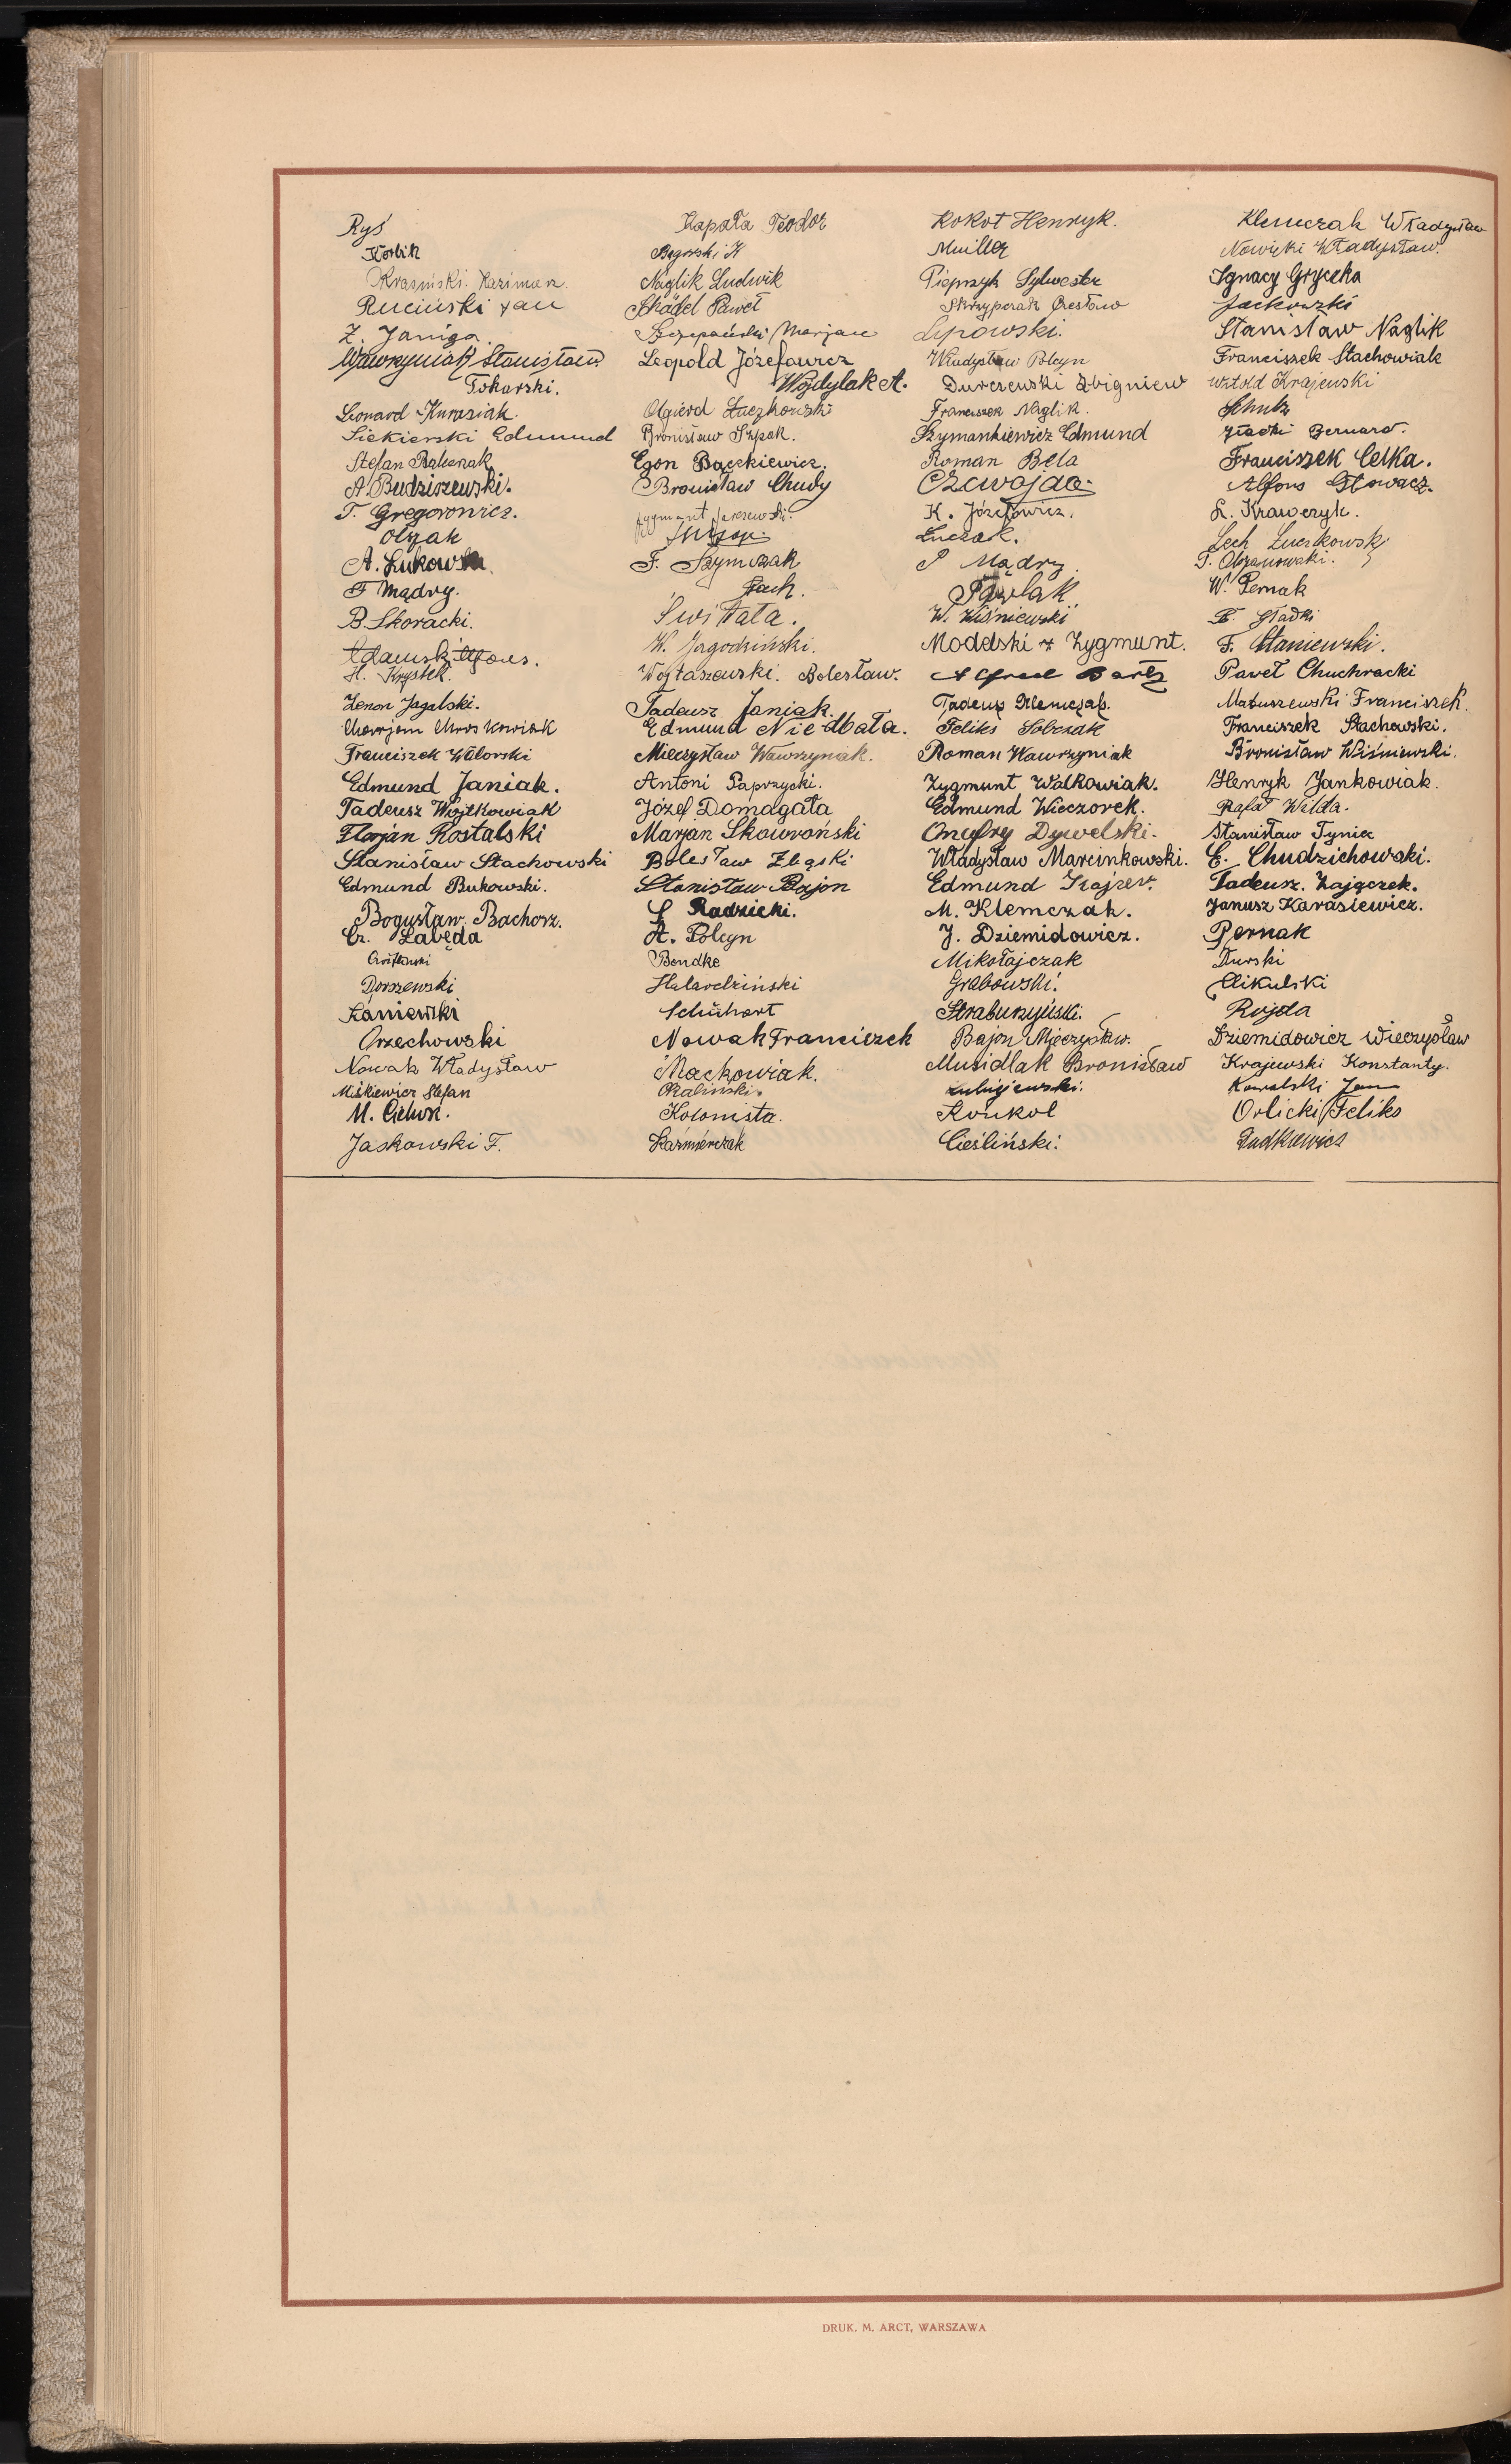 Ryś Kapała Teodor Kokot Henryk. Klemczak Władysław
Korbik Begerski K Muiller Nowicki Władysław.
Krasiński. Kazimierz. Naglik Ludwik Pieprzyk Sylwester Ignacy Gryczka
Ruciński Jan Skądel Paweł Skrzypczak Czesław Jackowski
Z. Janiga. Szczepański Marjan Lipowski. Stanisław Naglik
Wawrzyniak Stanisław. Leopold Józefowicz Władysław Polcyn Franciszek Stachowiak
Tokarski. Wojdylak A. Durczewski Zbigniew Witold Krajewski
Leonard Kurasiak. Olgierd Łuczkowski Franciszek Naglik. Schulz
Siekierski Edmund Bronisław Szpak. Szymankiewicz Edmund Gładki Bernard.
Stefan Balcerzak Egon Bączkiewicz. Roman Bela Franciszek Celka.
A. Budziszewski. Bronisław Chudy Czewojda. Alfons Głowacz.
T. Gregorowicz. Zygmunt K. Józefowicz. L. Krawczyk.
Olszak Łuczak. Lech Łuczkowski
A. Łukowski F. Szymczak P Mądry. T. Olszanowski.
F Mądry. Jach. Pawlak W. Pernak
B. Skoracki. Świtała. W. Wiśniewski B. Gładki
Adamski Alfons. W. Jagodziński. Modelski Zygmunt. F. Staniewski.
H. Krystek. Wojtaszewski. Bolesław. Alfred Bartz Paweł Chuchracki
Zenon Jagalski. Tadeusz Janiak. Tadeusz Klemczak. Matuszewski Franciszek.
Marjan Mroskowiak Edmund Niedbała. Feliks Sobczak Franciszek Stachowski.
Franciszek Walorski Mieczysław Wawrzyniak. Roman Wawrzyniak Bronisław Wiśniewski.
Edmund Janiak. Antoni Paprzycki. Zygmunt Walkowiak. Henryk Jankowiak.
Tadeusz Wojtkowiak Józef Domagała Edmund Wieczorek. Rafał Wilda.
Florjan Rostalski Marjan Skowroński Onufry Dywelski. Stanisław Tyniec
Stanisław Stachowski Bolesław Zląski Władysław Marcinkowski. E. Chudzichowski.
Edmund Bukowski. Stanisław Bajon Edmund Krajzer. Tadeusz. Zajączek.
Bogusław. Bachorz. S Radzicki. M. Klemczak. Janusz Karasiewicz.
Cz. Łabęda A. Polcyn J. Dziemidowicz. Pernak
Bendke Mikołajczak Durski
Dorszewski Halardziński Grabowski. Mikulski
Kaniewski Schühart Straburzyński. Rojda
Orzechowski Nowak Franciszek Bajon Mieczysław. Dziemidowicz Mieczysław
Nowak Władysław Maćkowiak. Musidlak Bronisław Krajewski Konstanty.
Miśkiewicz Stefan Kaliński. Lubiejewski. Kowalski Jan
M. Cichon. Kolonista. Koukol Orlicki Feliks
Jaskowski F. Kaźmierczak Cieśliński. Dudkiewicz
DRUK. M. ARCT, WARSZAWA